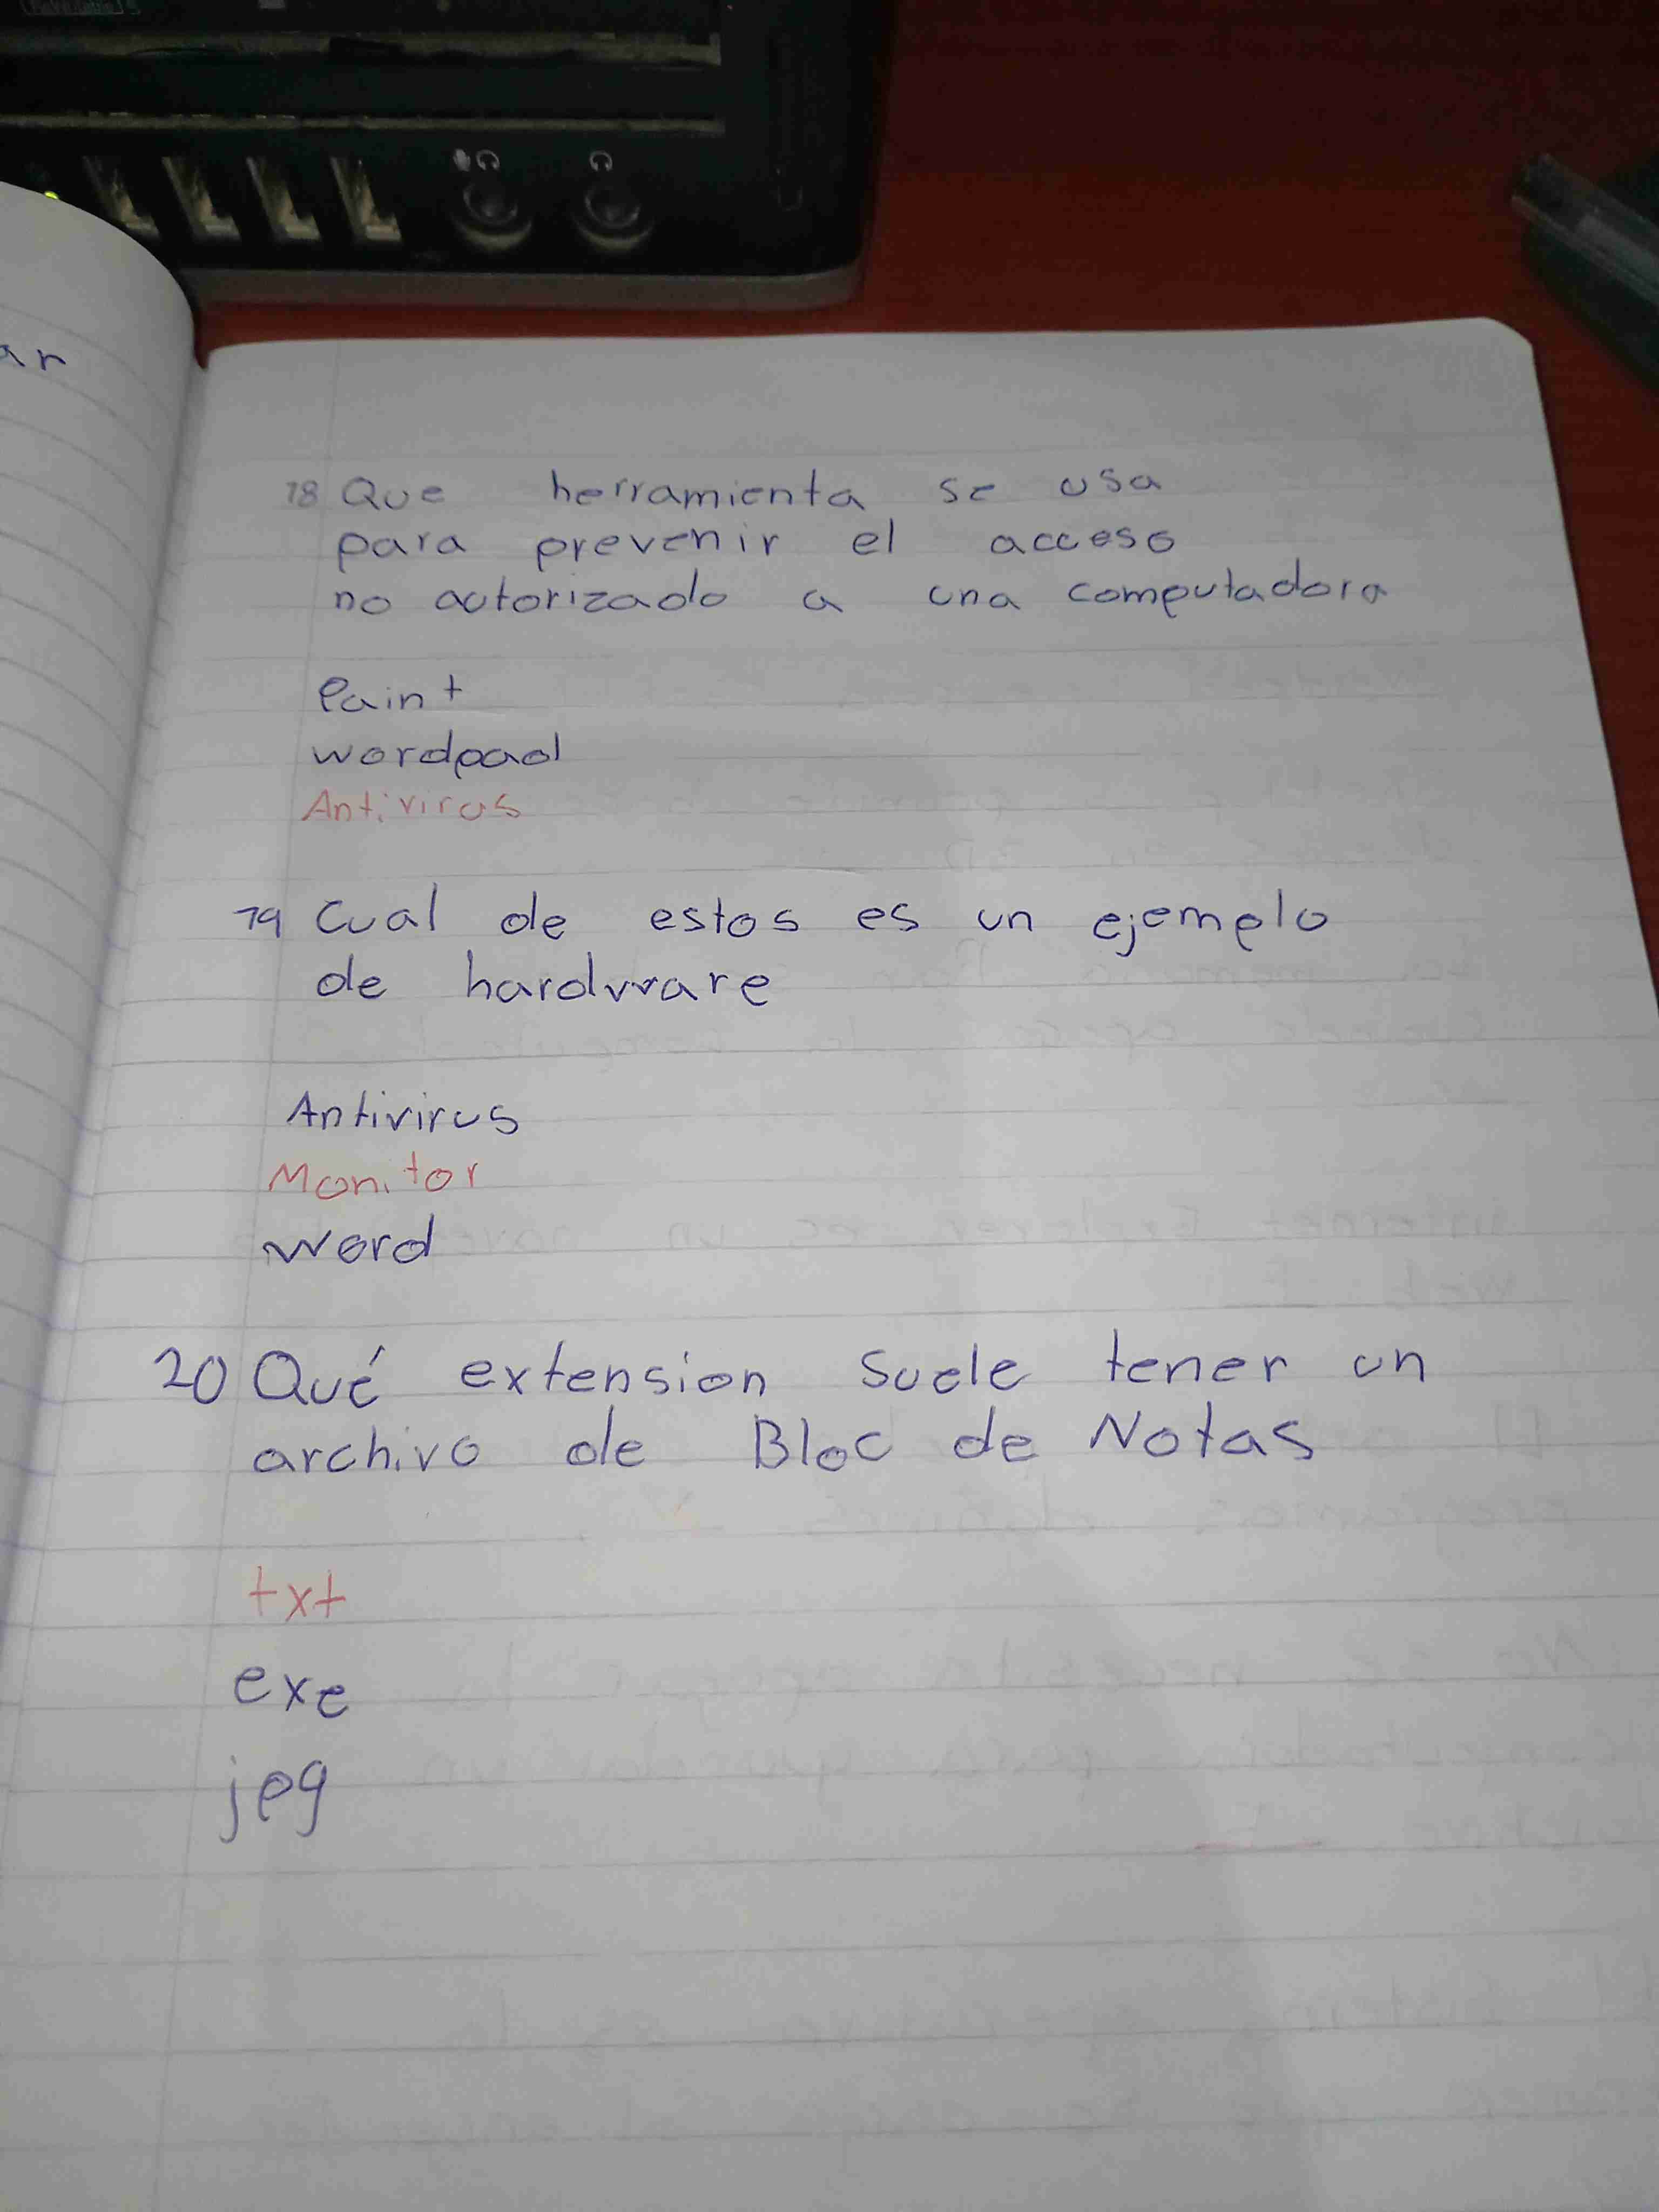 ar
18 Que herramienta se usa
para prevenir el acceso
no autorizado a una computadora
Paint
wordpad
Antivirus
19 Cual de estos es un ejemplo
de hardware
Antivirus
Monitor
word
20 Qué extension suele tener un
archivo de Bloc de Notas
txt
exe
jpg